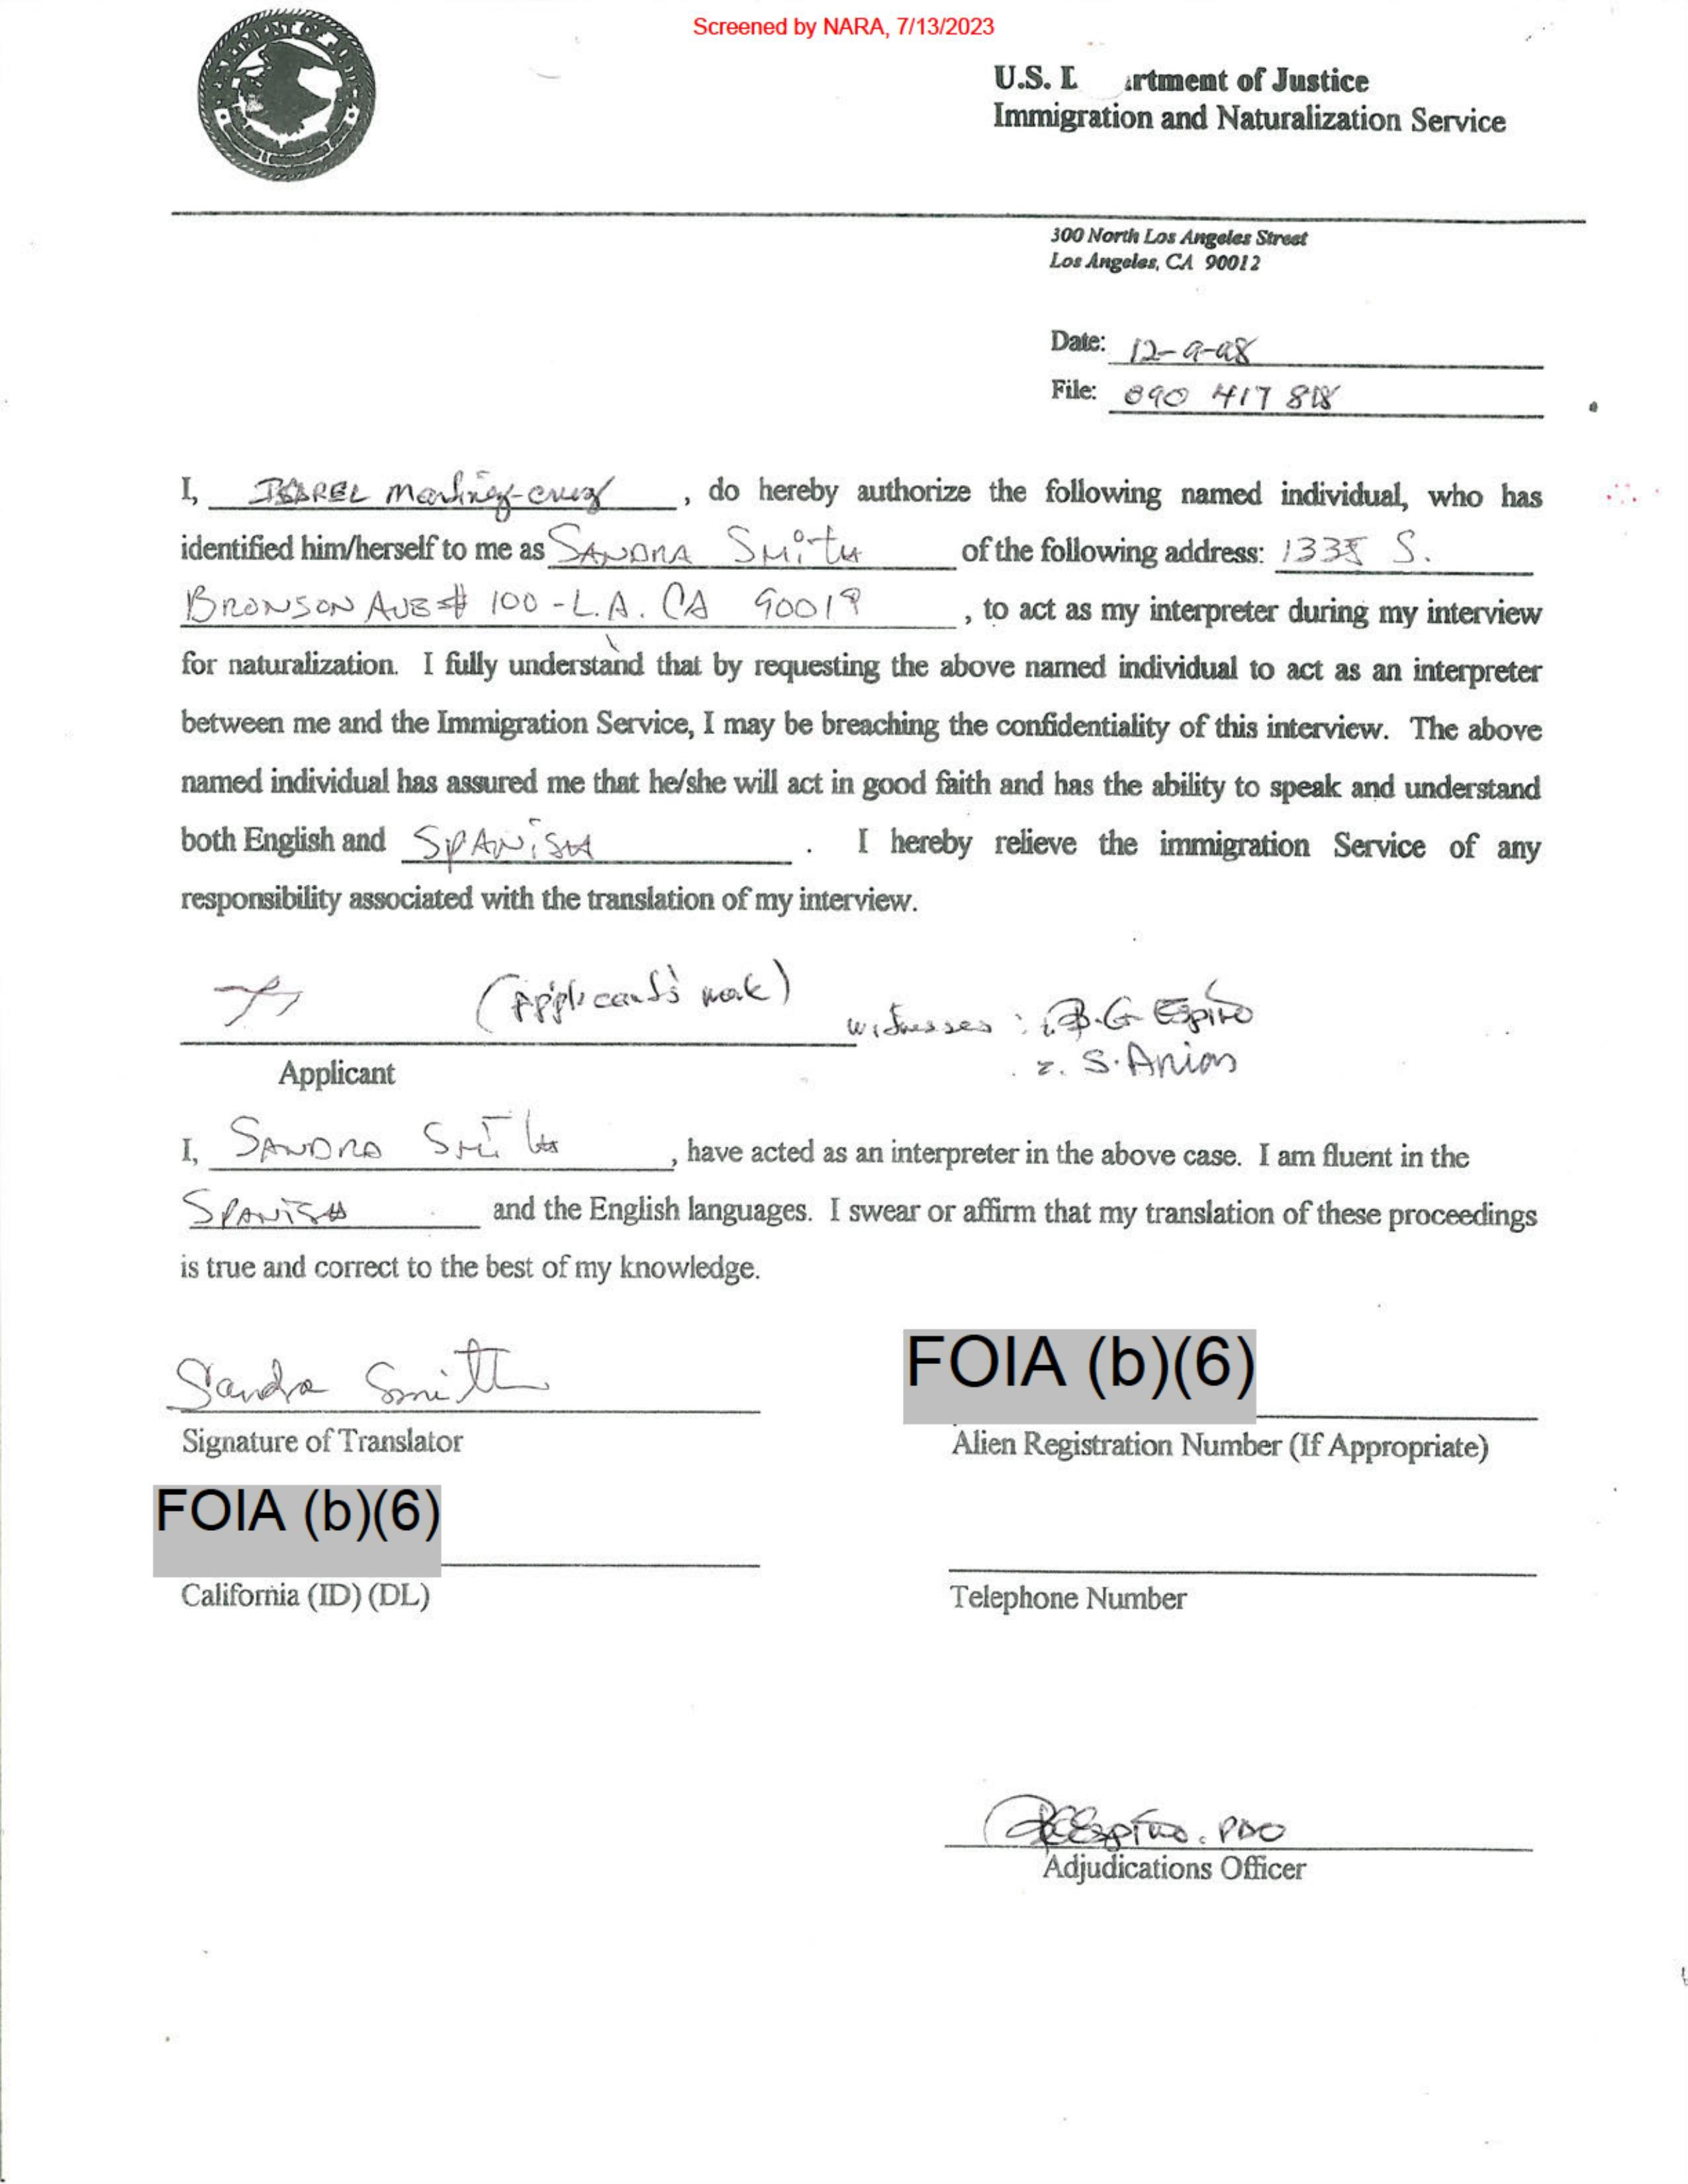 Screened by NARA, 7/13/2023
U.S. artment of Justice
Immigration and Naturalization Service
300 North Los Angeles Street
Los Angeles, CA 90012
Date: 12-9-98
File: 090 417 818
I, , do hereby authorize the following named individual, who has
identified him/herself to me as SANDRA SMITH of the following address: 1335 S.
BRONSON AVE # 100 - L.A. CA 90019 , to act as my interpreter during my interview
for naturalization. I fully understand that by requesting the above named individual to act as an interpreter
between me and the Immigration Service, I may be breaching the confidentiality of this interview. The above
named individual has assured me that he/she will act in good faith and has the ability to speak and understand
both English and SPANISH . I hereby relieve the immigration Service of any
responsibility associated with the translation of my interview.
(Applicant's mark)
witnesses : 1. B.G Espino
2. S. Arias
Applicant
I, SANDRA SMITH , have acted as an interpreter in the above case. I am fluent in the
SPANISH and the English languages. I swear or affirm that my translation of these proceedings
is true and correct to the best of my knowledge.
Sandra Smith
FOIA (b)(6)
Signature of Translator
Alien Registration Number (If Appropriate)
FOIA (b)(6)
California (ID) (DL)
Telephone Number
Adjudications Officer